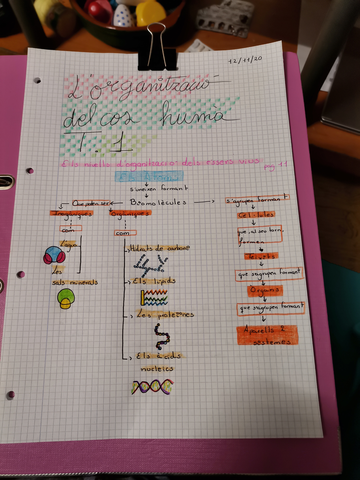 12/11/20
L'organització
del cos humà
T.1
Els nivells d'organització dels éssers vius pg 11
s'uneixen formant
Que poden ser Biomolècules s'agrupen formant
Inorgàniques Orgàniques
com com
L'aigua
Les
sals minerals
Hidrats de carbone
Els lípids
Les proteïnes
Els àcids
nucleics
Cèl·lules
formen
Teixits
que s'agrupen formant
Òrgans
que s'agrupen formant
Aparells i
sistemes